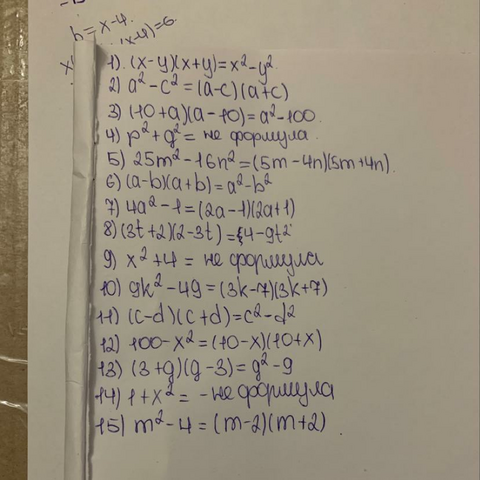 h = x-4.
(x-4)=6.
1) (x-y)(x+y)=x²-y²
2) a²-c²=(a-c)(a+c)
3) (10+a)(a-10)=a²-100.
4) p²+g²= не формула
5) 25m²-16n²=(5m-4n)(5m+4n)
6) (a-b)(a+b)=a²-b²
7) 4a²-1=(2a-1)(2a+1)
8) (3t+2)(2-3t)=4-9t²
9) x²+4= не формула
10) 9k²-49=(3k-7)(3k+7)
11) (c-d)(c+d)=c²-d²
12) 100-x²=(10-x)(10+x)
13) (3+g)(g-3)=g²-9
14) 1+x²= - не формула
15) m²-4=(m-2)(m+2)